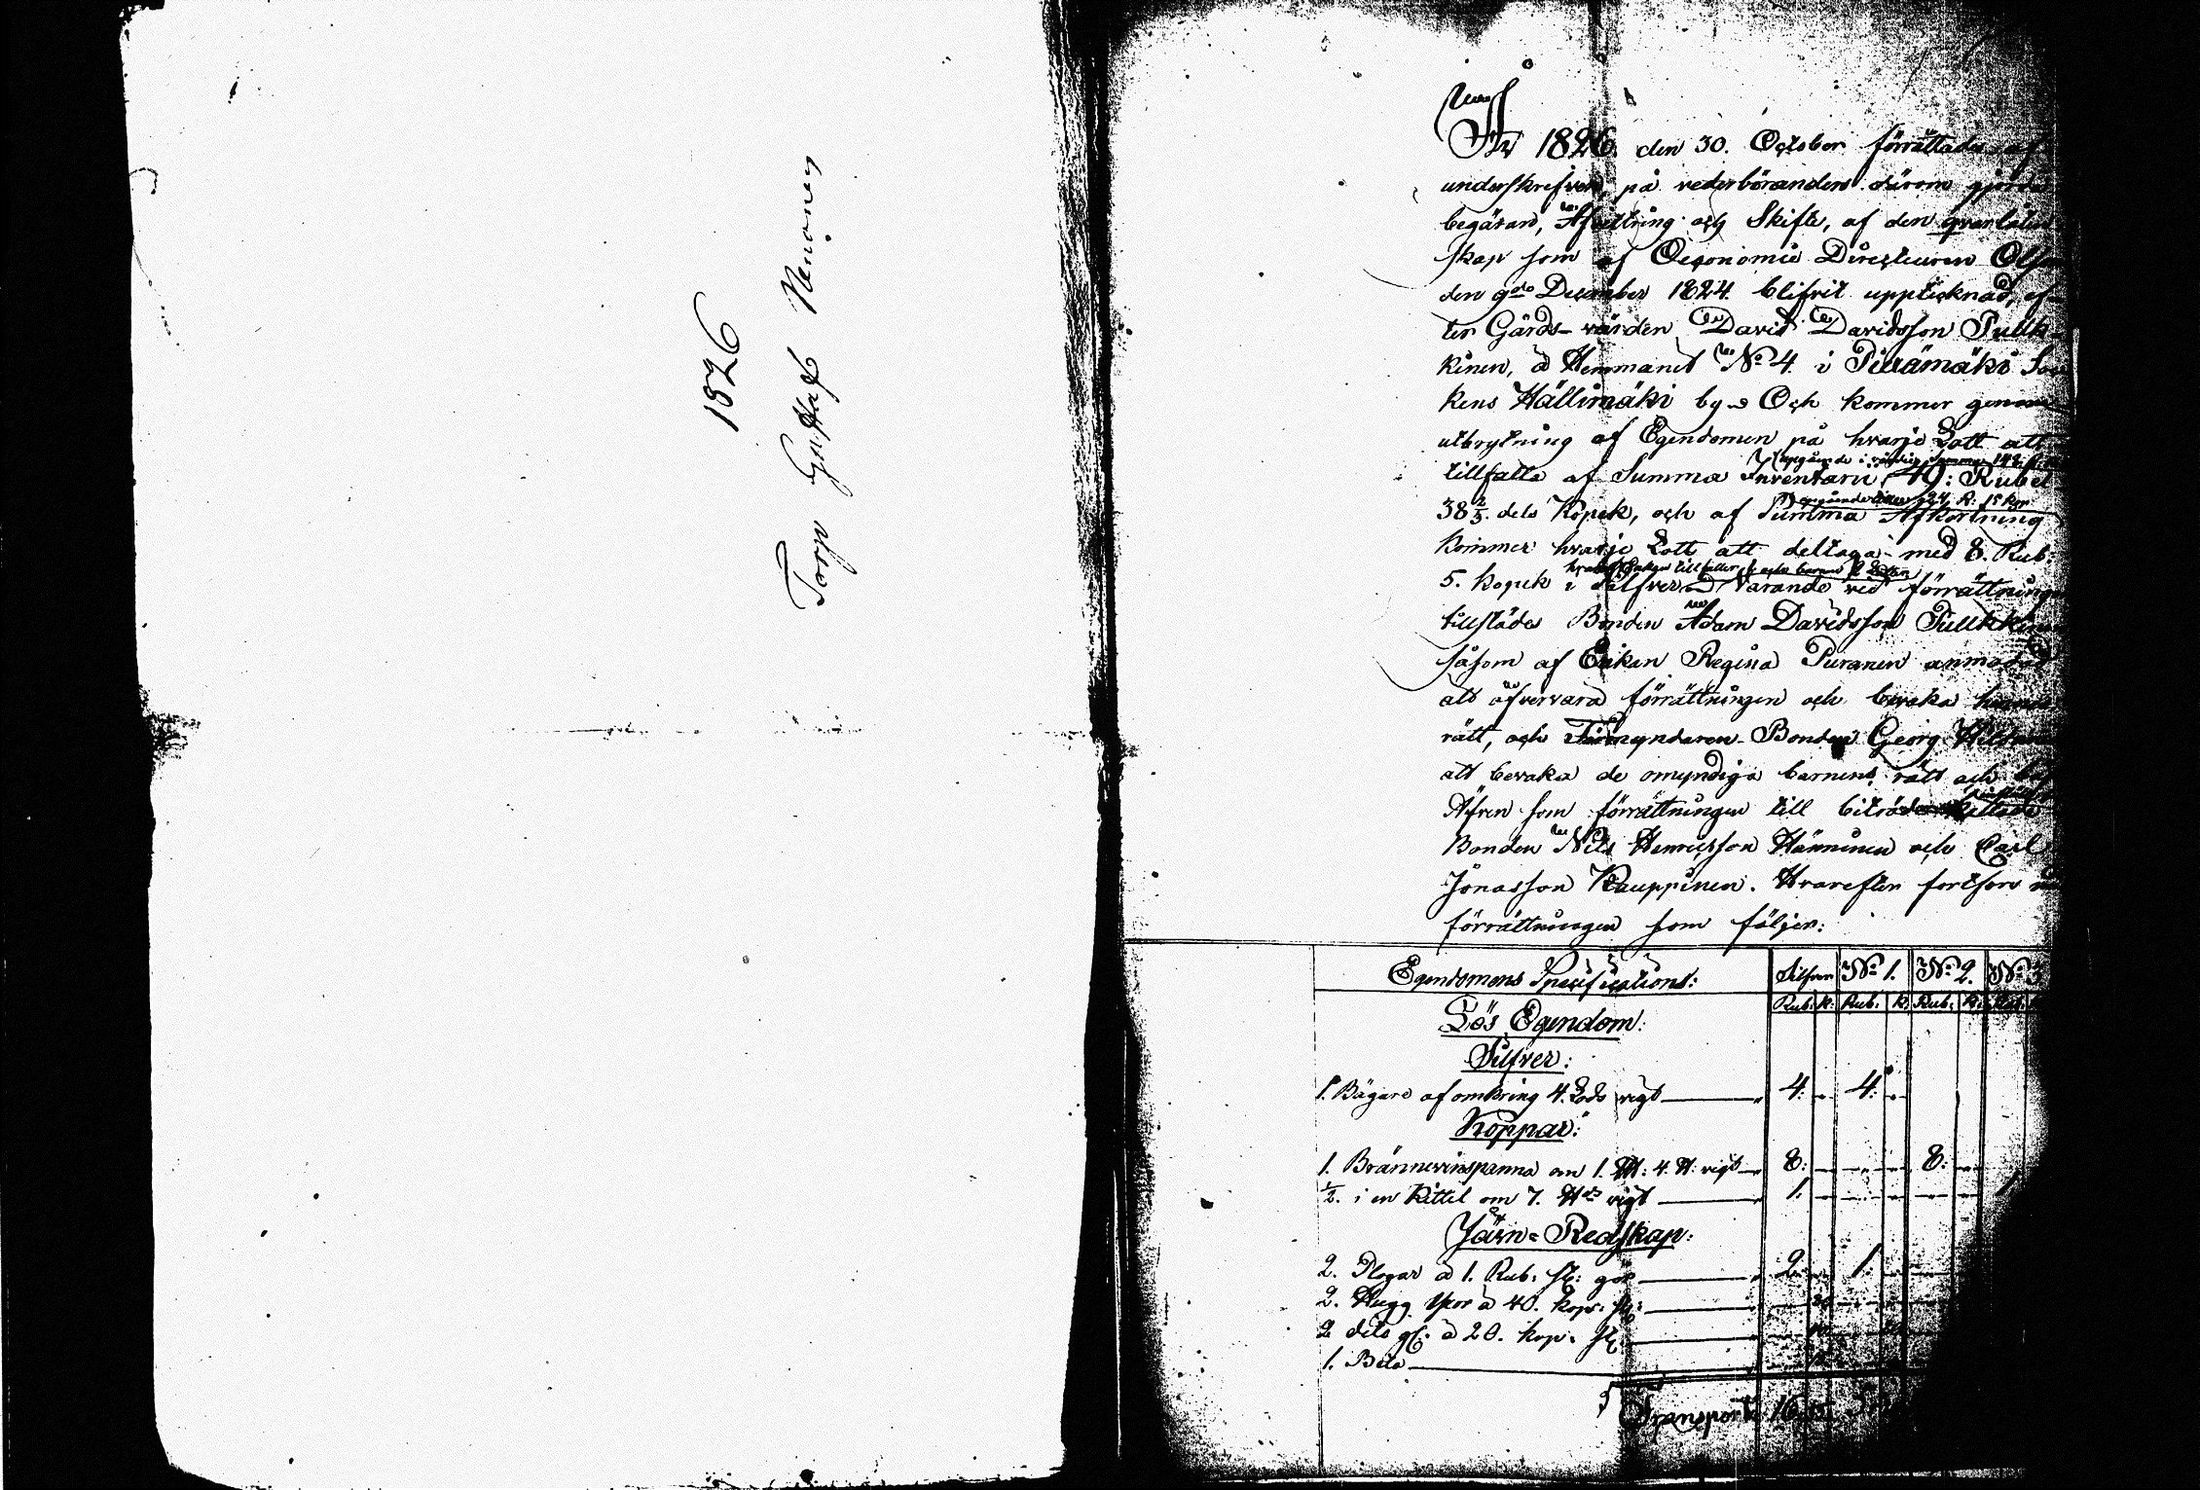 1826
Torp Gustaf Nenonen
År 1826. den 30. October förrättades af
underskrefven, på vederböranders därom gjorde
begäran, Afvittring och Skifte, af den qvarlåten
skap som af Oeconomie Directeuren Olsson
den 9de December 1824 blifvit upptecknad, ef-
ter Gårds-värden David Davidsson Pulk-
kinen, å Hemmanet No 4. i Pielämäki Soc
kens Hällimäki by Och kommer genom
utbrytning af Egendomen på hvarje Lott att
tillfalla af Summa Inventarii 49: Rubel
38 2/3. dels Kopek, och af Summa Afkortning
kommer hvarje Lott att deltaga med 8. Rub:
5. kopek i Silfver Varande vid förrättningen
tillstädes Bonden Adam Davidsson Pulkkinen
såsom af Enkan Regina Puranen anmodad
att öfvervara förrättningen och bevaka hennes
rätt, och Förmyndaren Bonden Georg
att bevaka de omyndiga barnens rätt och
Äfven som förrättningen till biträde
Bonden Nils Henricsson Hänninen och Carl
Jonasson Kauppinen. Hvarefter fortfors med
förrättningen som följer:
Egendomens Specifications: Silfver No 1. No 2. No 3
Rub: k. Rub: k. Rub: k. Rub:
Lös Egendom:
Silfver:
1. Bägare af omkring 4. Lods vigt 4: 4:
Koppar:
1. Brännevinspanna om 1. L℔: 4. ℔: vigt 8: 8:
1/2. i en Kittel om 7. ℔ds vigt 1: 1
Järn-Redskap:
2. Plogar à 1. Rub. st: gör 2. 1.
2. Hugg Yxor à 40. kop: st:
2 dito gl: à 20. kop. st:
1. Bila
Transport 16